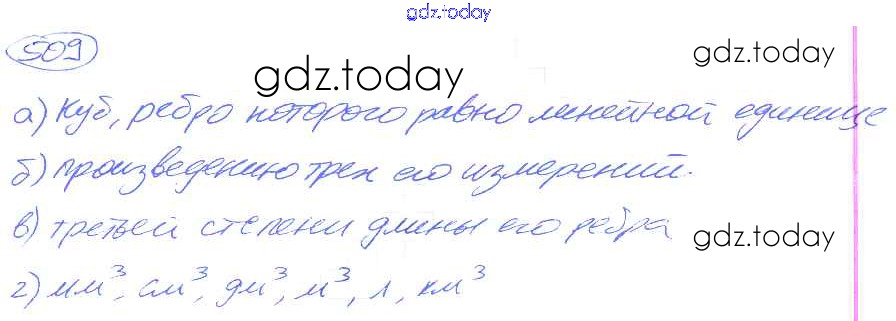 gdz.today
509
gdz.today
gdz.today
а) куб, ребро которого равно линейной единице
б) произведению трех его измерений.
в) третьей степени длины его ребра
gdz.today
г) мм³, см³, дм³, м³, л, км³